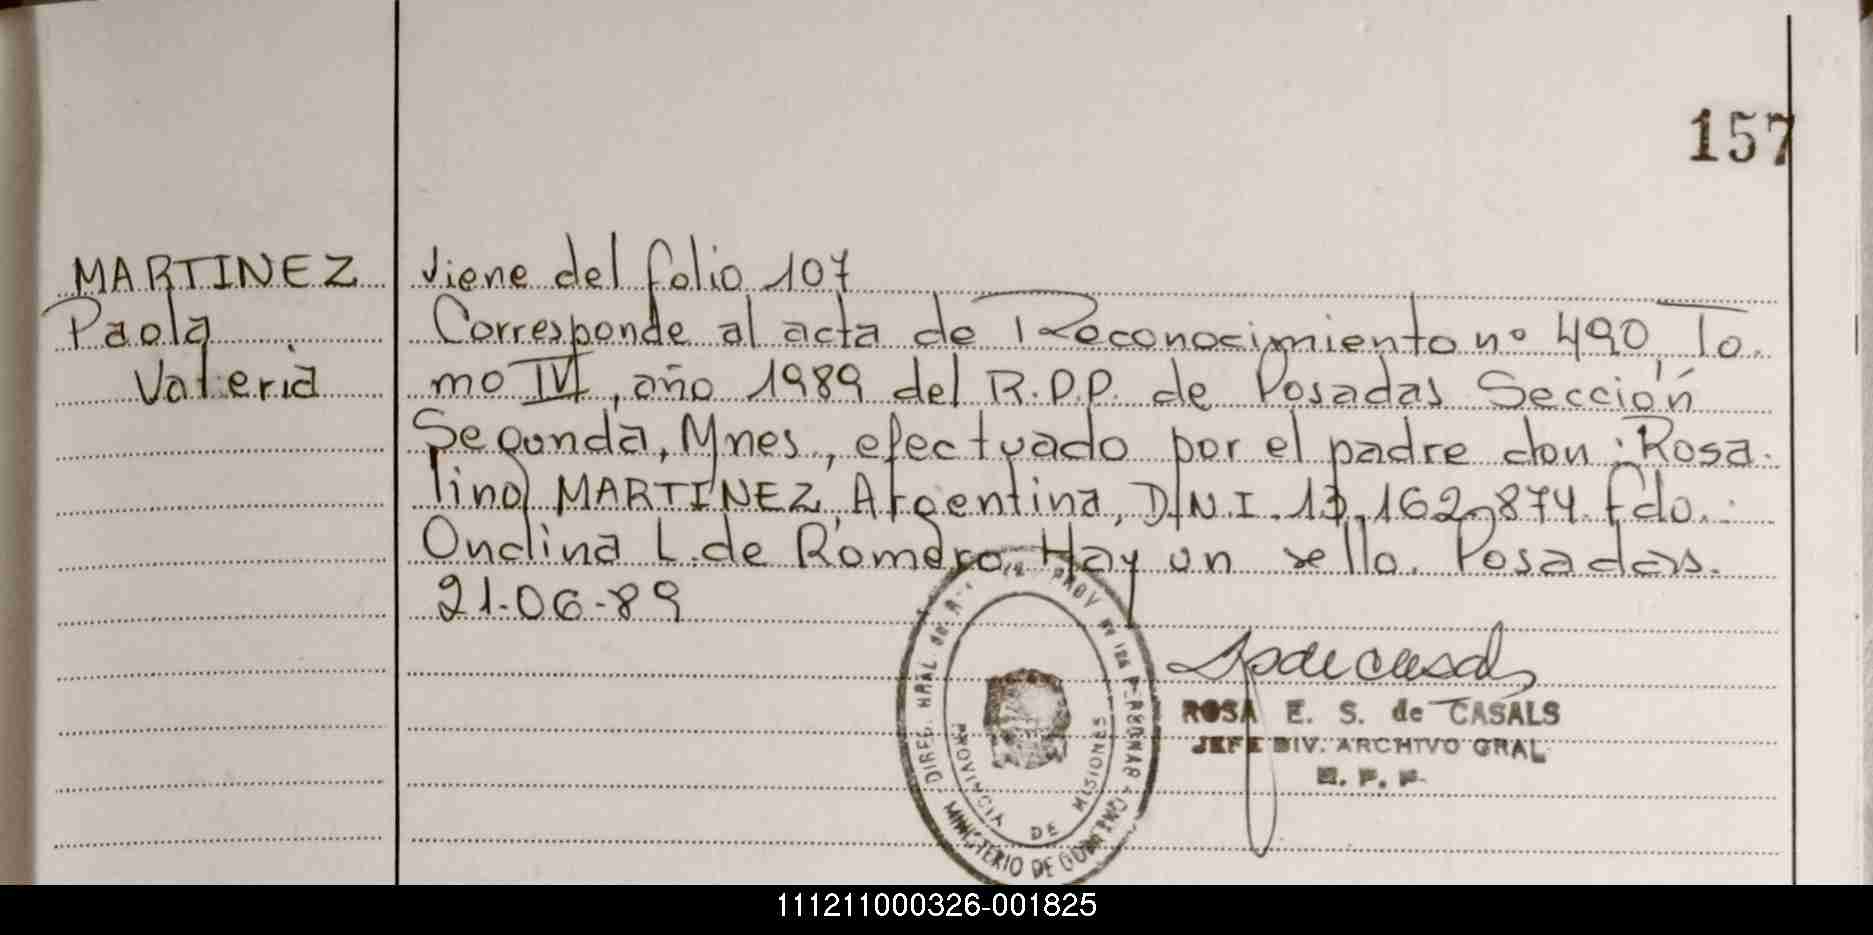 157
MARTINEZ
Paola
Valeria
Viene del folio 107
Corresponde al acta de Reconocimiento nº 490, To-
mo IV, año 1989 del R.P.P. de Posadas Sección
Segunda, Mnes., efectuado por el padre don: Rosa-
lino MARTINEZ, Argentina, D.N.I. 13.162.874. fdo.:
Ondina L. de Romero. Hay un sello. Posadas.
21-06-89
ROSA E. S. de CASALS
JEFE DIV. ARCHIVO GRAL
R. P. P.
PROVINCIA DE MISIONES
MINISTERIO DE GOBIERNO
111211000326-001825